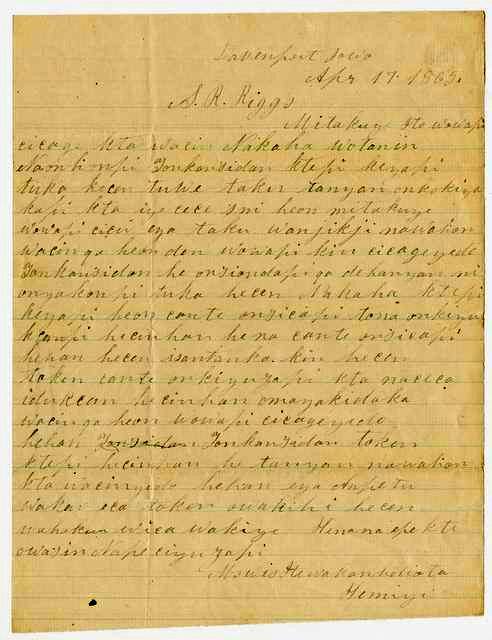 Davenport Iowa
Apr 17. 1865.
S. R. Riggs
Mitakuye Ito wowapi
cicage kta wacin Nakaha wotanin
Naonhonpi Tonkansidan ktepi keyapi
tuka hecen tuwe taku tanyan onkokiya
kapi kta iye cece sni heon mitakuye
wowapi cicu eya taku wanjikji nawahon
wacin qa heon don wowapi kin cicageyedo
Tonkansidan he onsiondapi qa dehanyan ni
onyakonpi tuka hecen Nakaha ktepi
keyapi heon cante onsicapi tona onkinu
kanpi hecinhan hena cante onsicapi
hehan hecen isantanka kin hecen
token cante onkiyuzapi kta naceca
idukcan hecinhan omayakidaka
wacin qa heon wowapi cicageyedo
hehan Tonkansidan token
ktepi hecinhan he tanyan nawahon
kta wacinyedo hehan eya Anpetu
wakan eca token owakihi hecen
wahokon wica wakiye Henana epe kte
owasin Nape ciyuzapi
Mowis Hewakanheliota
Hemiye